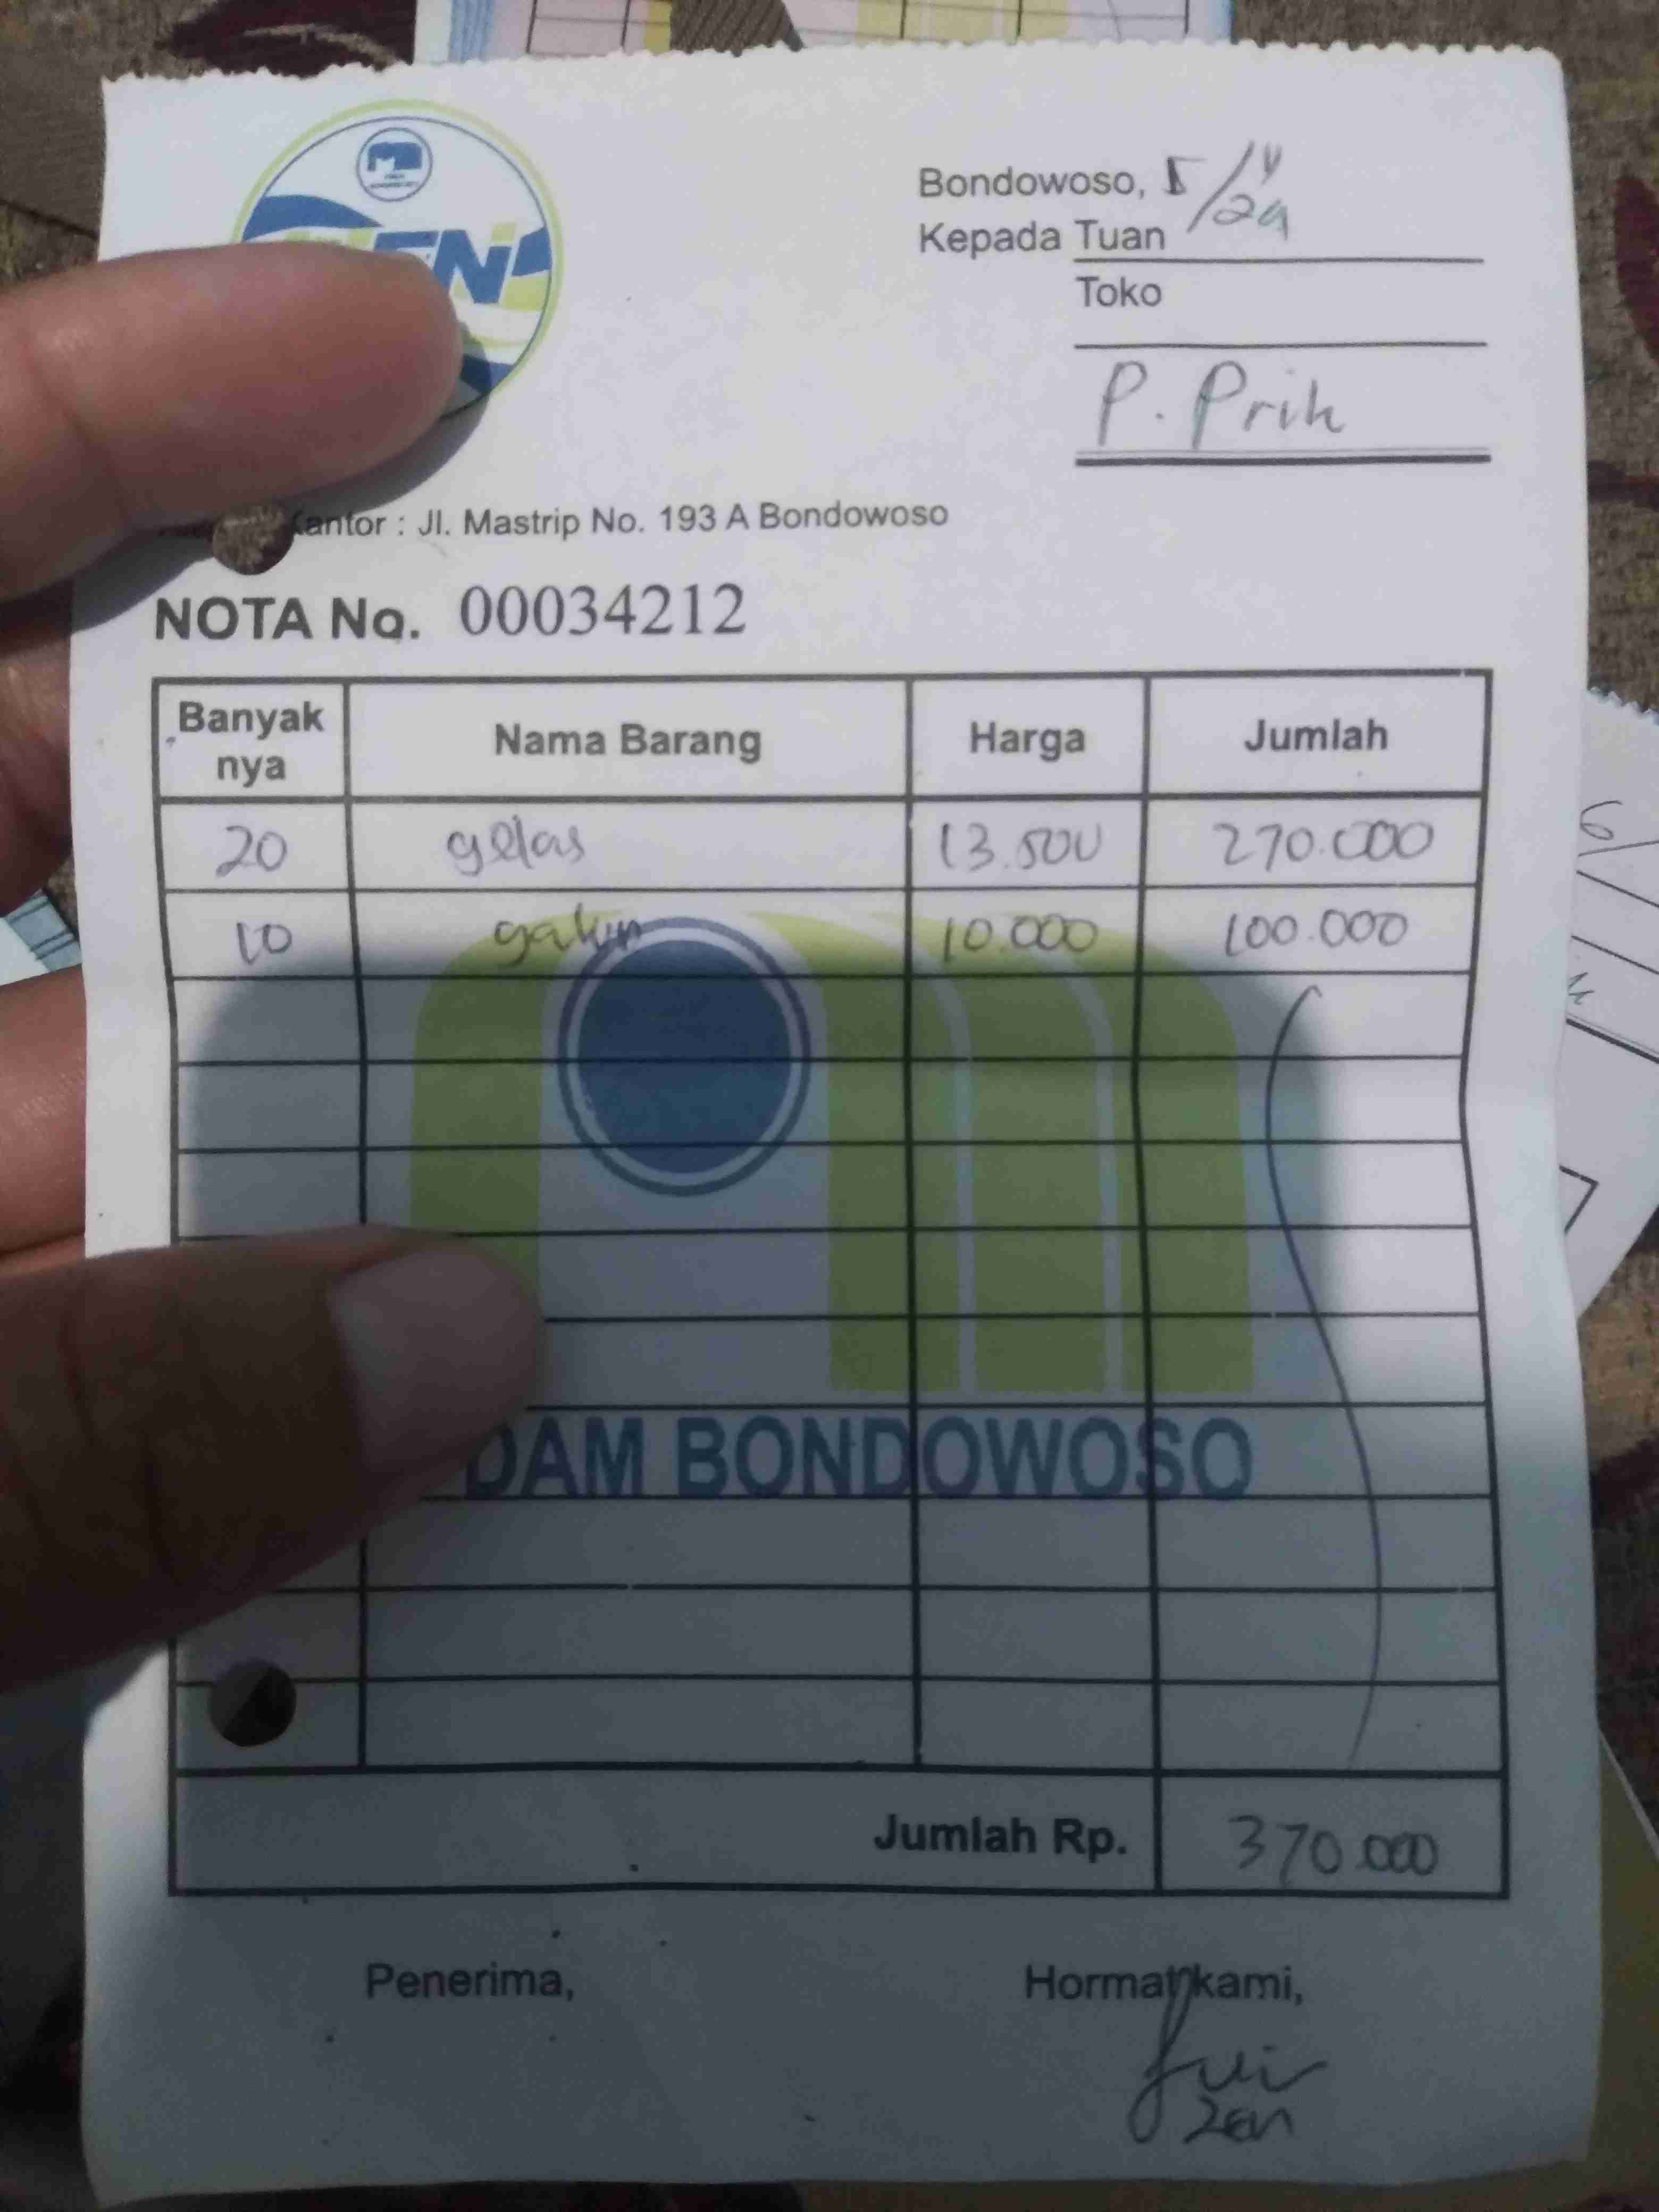 Bondowoso, 5/4/24
Kepada Tuan
Toko
P. Prih
Kantor : Jl. Mastrip No. 193 A Bondowoso
NOTA No. 00034212
Banyak nya Nama Barang Harga Jumlah
20 gelas 13.500 270.000
10 galun 10.000 100.000
DAM BONDOWOSO
Jumlah Rp. 370.000
Penerima, Hormat kami,
zen